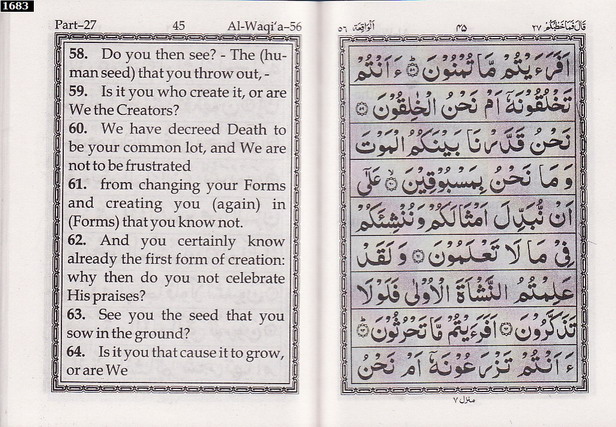 1683
Part–27 45 Al-Waqi'a–56
58. Do you then see? - The (hu-
man seed) that you throw out, -
59. Is it you who create it, or are
We the Creators?
60. We have decreed Death to
be your common lot, and We are
not to be frustrated
61. from changing your Forms
and creating you (again) in
(Forms) that you know not.
62. And you certainly know
already the first form of creation:
why then do you not celebrate
His praises?
63. See you the seed that you
sow in the ground?
64. Is it you that cause it to grow,
or are We
قَالَ فَمَا خَطْبُكُمْ ٢٧ ٤٥ اَلْوَاقِعَة ٥٦
اَفَرَءَيْتُمْ مَّا تُمْنُوْنَ ﴿٥٨﴾ ءَاَنْتُمْ
تَخْلُقُوْنَهٗٓ اَمْ نَحْنُ الْخٰلِقُوْنَ ﴿٥٩﴾
نَحْنُ قَدَّرْنَا بَيْنَكُمُ الْمَوْتَ
وَمَا نَحْنُ بِمَسْبُوْقِيْنَ ﴿٦٠﴾ عَلٰٓى
اَنْ نُّبَدِّلَ اَمْثَالَكُمْ وَنُنْشِئَكُمْ
فِيْ مَا لَا تَعْلَمُوْنَ ﴿٦١﴾ وَلَقَدْ
عَلِمْتُمُ النَّشْاَةَ الْاُوْلٰى فَلَوْلَا
تَذَكَّرُوْنَ ﴿٦٢﴾ اَفَرَءَيْتُمْ مَّا تَحْرُثُوْنَ ﴿٦٣﴾
ءَاَنْتُمْ تَزْرَعُوْنَهٗٓ اَمْ نَحْنُ
منزل ٧